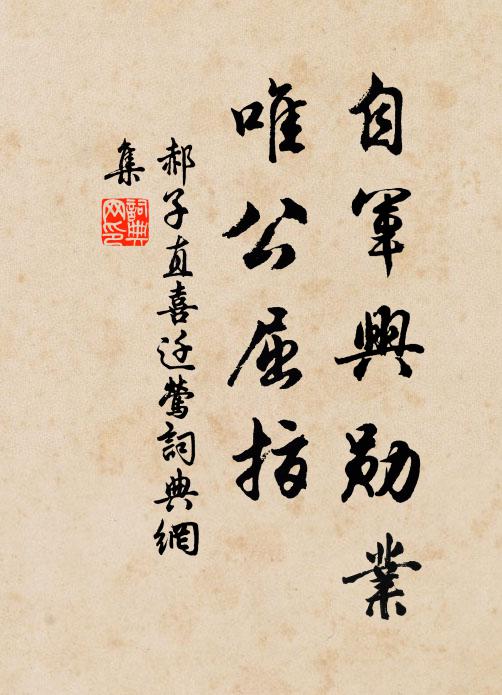 自軍興勛業
唯公屈指
郝子直喜迁鶯詞典網
集
詞典
网印